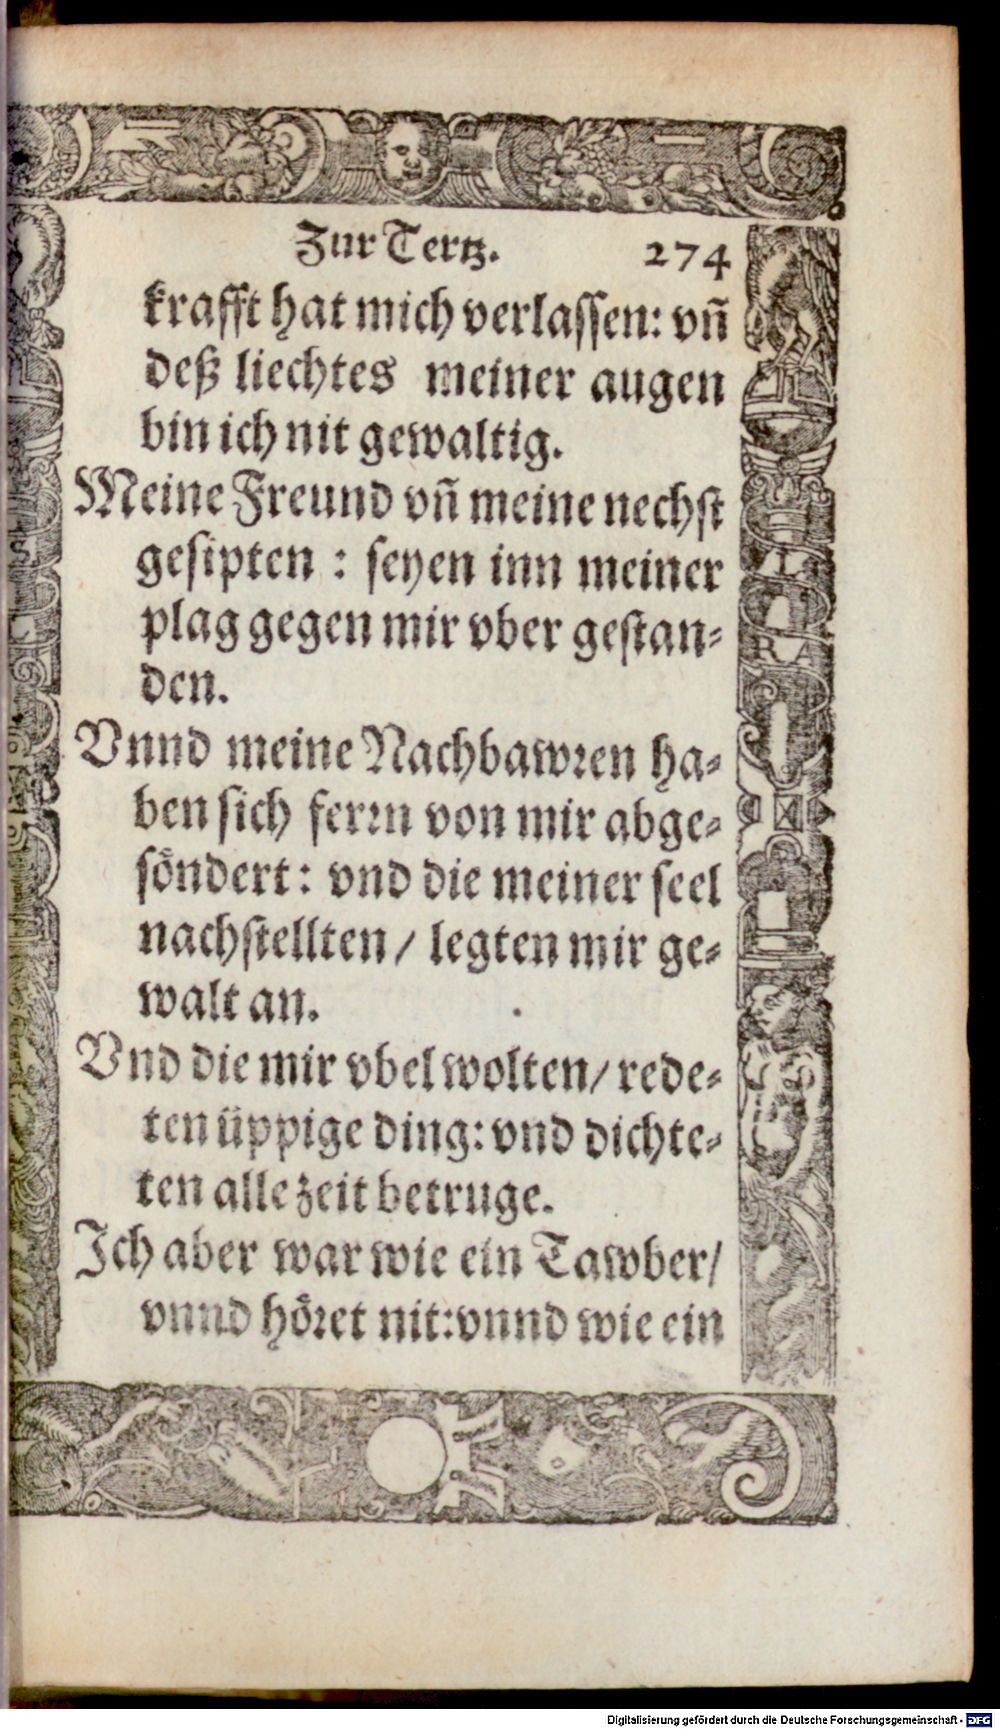 Zur Tertz. 274
krafft hat mich verlassen: vñ
deß liechtes meiner augen
bin ich nit gewaltig.
Meine Freund vñ meine nechst
gesipten : seyen inn meiner
plag gegen mir vber gestan⸗
den.
Vnnd meine Nachbawren ha⸗
ben sich ferrn von mir abge⸗
söndert: vnd die meiner seel
nachstellten / legten mir ge⸗
walt an.
Vnd die mir vbel wolten / rede⸗
ten üppige ding: vnd dichte⸗
ten alle zeit betruge.
Ich aber war wie ein Tawber /
vnnd höret nit: vnnd wie ein
Digitalisierung gefördert durch die Deutsche Forschungsgemeinschaft - DFG